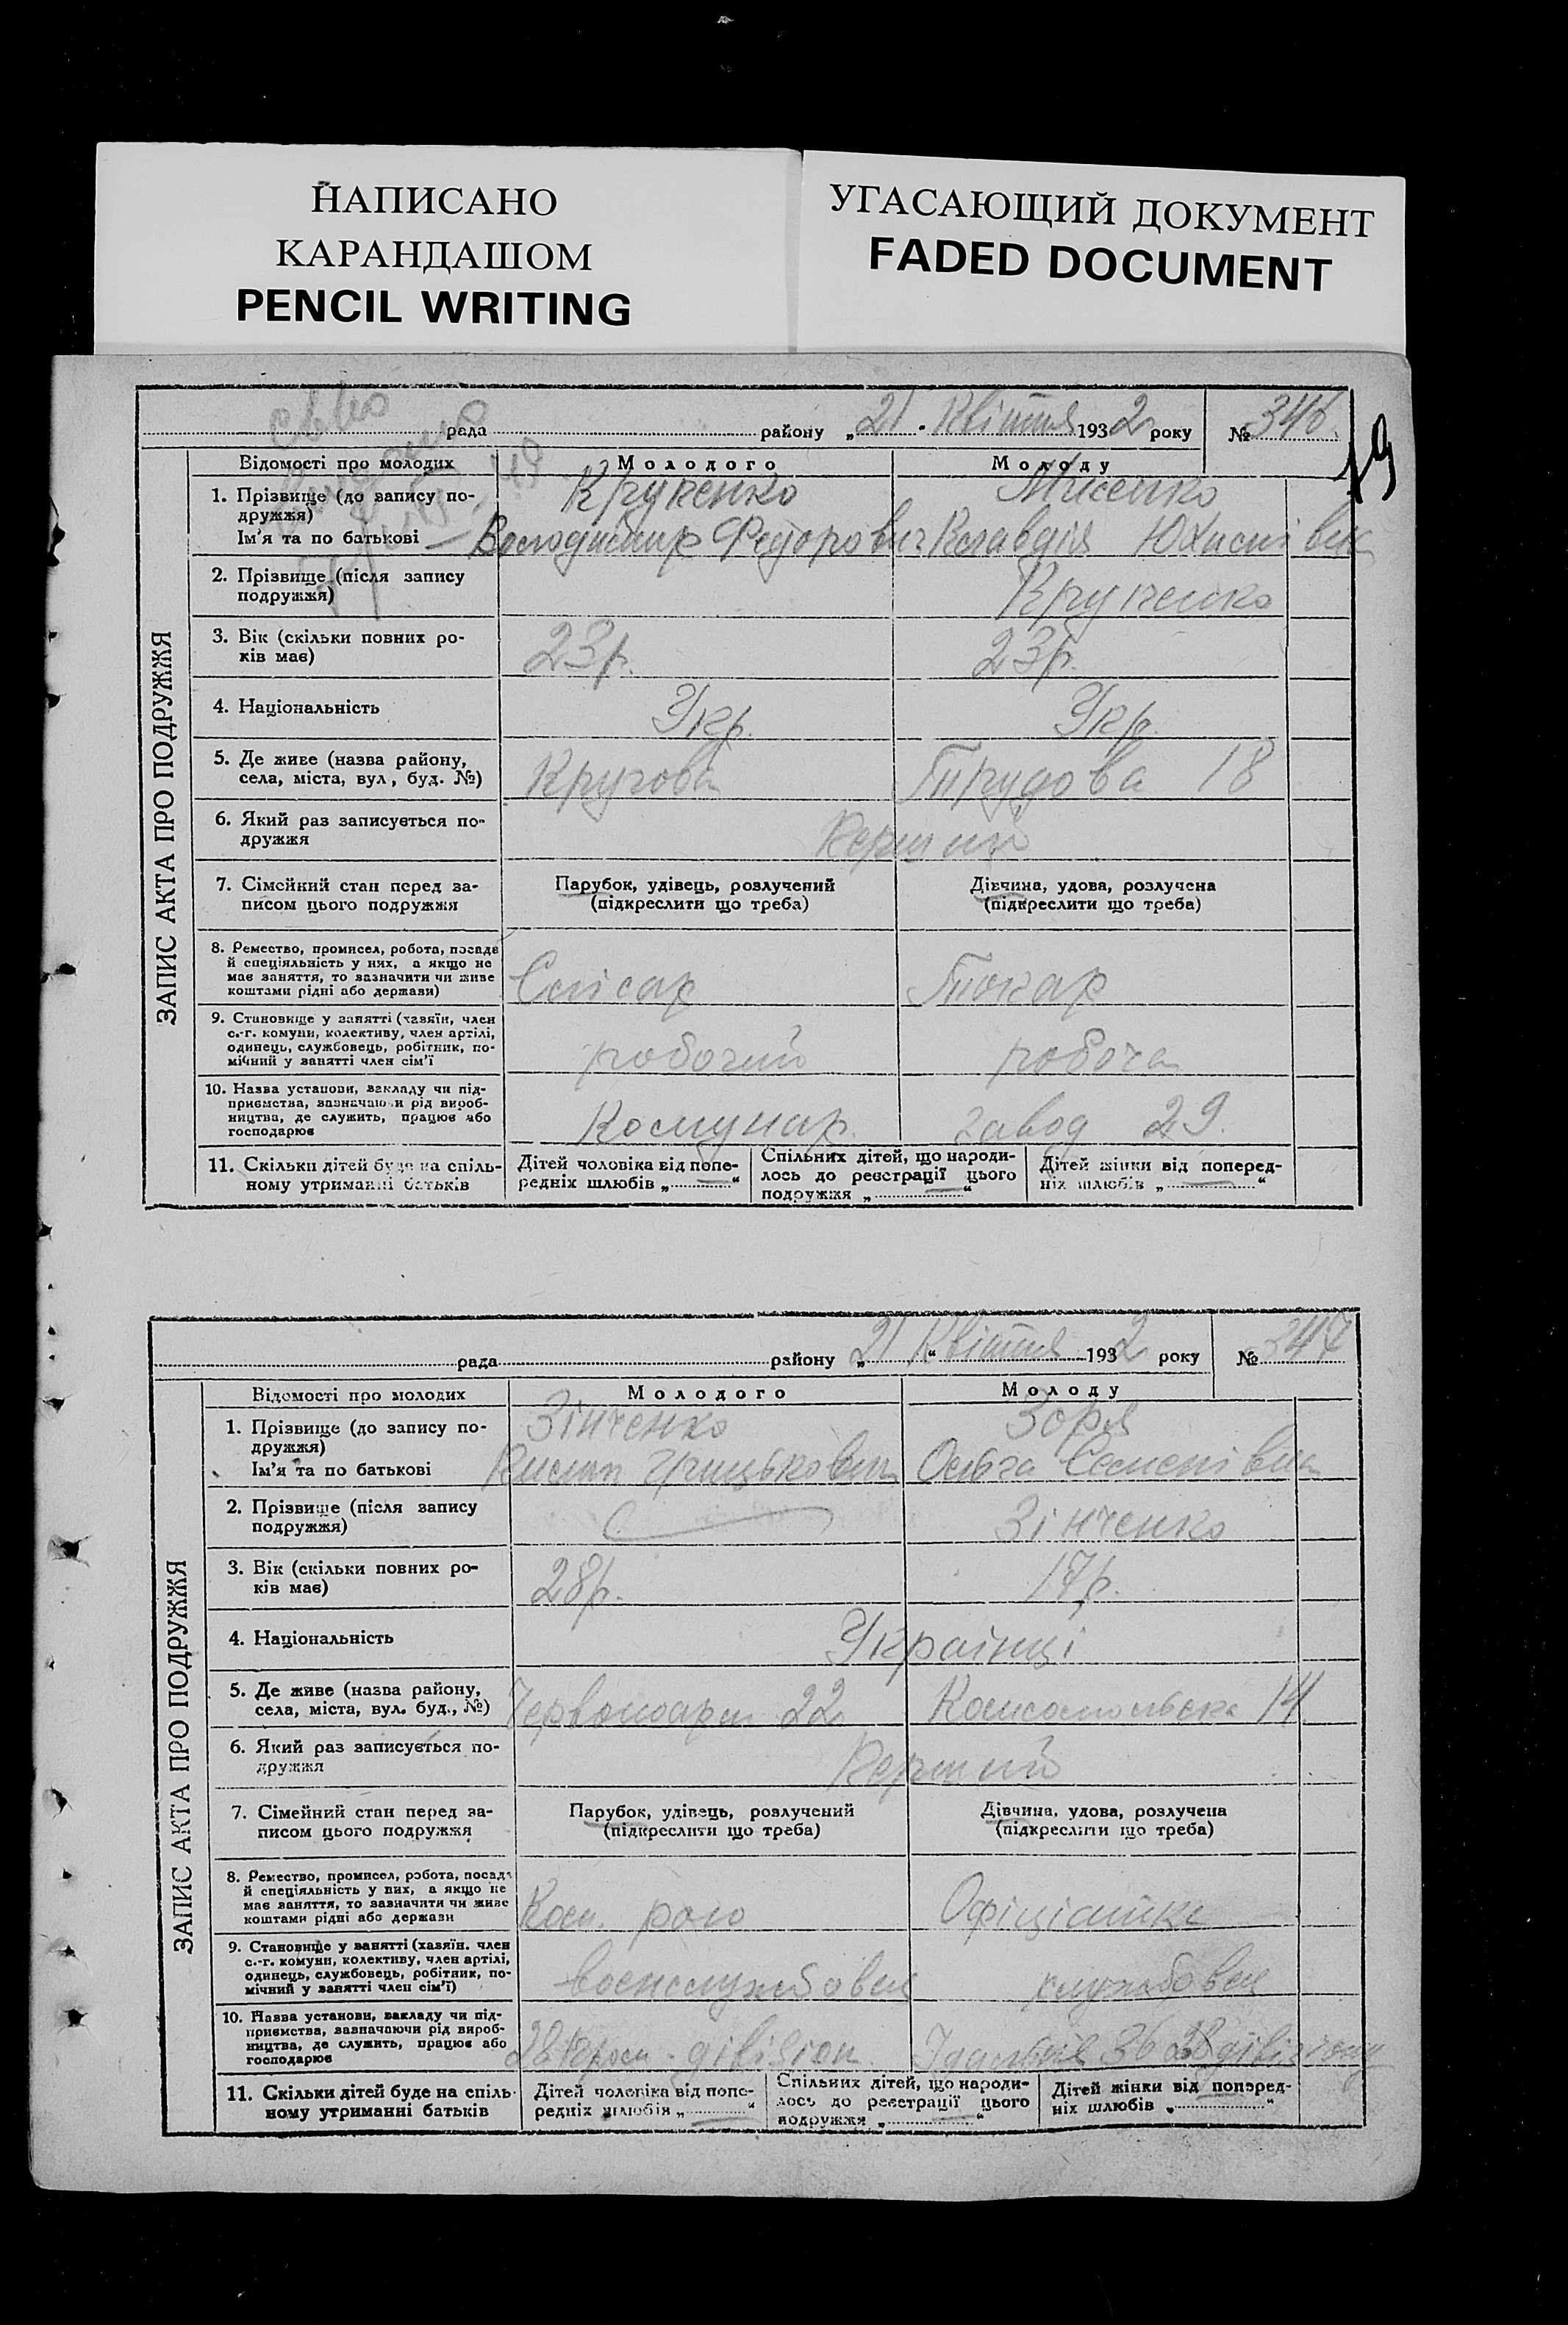 НАПИСАНО
КАРАНДАШОМ
PENCIL WRITING
УГАСАЮЩИЙ ДОКУМЕНТ
FADED DOCUMENT
19
ЗАПИС АКТА ПРО ПОДРУЖЖЯ
рада району „21. Квітня 1932 року № 346
Відомості про молодих Молодого Молоду
1. Прізвище (до запису по-
дружжя)
Ім'я та по батькові
Володимир Федорович Клавдія Юхимівна
2. Прізвище (після запису
подружжя)
3. Вік (скільки повних ро-
ків має)
23р. 23р.
4. Національність Укр. Укр.
5. Де живе (назва району,
села, міста, вул, буд. №)
Кругова Трудова 18
6. Який раз записується по-
дружжя
Перший
7. Сімейний стан перед за-
писом цього подружжя
Парубок, удівець, розлучений
(підкреслити що треба)
Дівчина, удова, розлучена
(підкреслити що треба)
8. Ремество, промисел, робота, посада
й спеціяльність у них, а якщо не
має заняття, то зазначити чи живе
коштами рідні або держави)
Слісар Токар
9. Становище у занятті (хазяїн, член
с.-г. комуни, колективу, член артілі,
одинець, службовець, робітник, по-
мічний у занятті член сім'ї
робочий робоча
10. Назва установи, закладу чи під-
приємства, зазначаючи рід вироб-
ництва, де служить, працює або
господарює
Комунар. завод 29.
11. Скільки дітей буде на спіль-
ному утриманні батьків
Дітей чоловіка від попе-
редніх шлюбів „ — “
Спільних дітей, що народи-
лось до реєстрації цього
подружжя „ — “
Дітей жінки від поперед-
ніх шлюбів „ — “
ЗАПИС АКТА ПРО ПОДРУЖЖЯ
рада району „21“ Квітня 1932 року № 347
Відомості про молодих Молодого Молоду
1. Прізвище (до запису по-
дружжя)
Ім'я та по батькові
Зінченко Зоря
Грицькович Ольга Семенівна
2. Прізвище (після запису
подружжя)
Зінченко
3. Вік (скільки повних ро-
ків має)
28р. 17р.
4. Національність Українці
5. Де живе (назва району,
села, міста, вул. буд., №)
Червоноарм 22 Комсомольська 14
6. Який раз записується по-
дружжя
Перший
7. Сімейний стан перед за-
писом цього подружжя
Парубок, удівець, розлучений
(підкреслити що треба)
Дівчина, удова, розлучена
(підкреслити що треба)
8. Ремество, промисел, робота, посада
й спеціяльність у них, а якщо не
має заняття, то зазначити чи живе
коштами рідні або держави
Ком. Офіціантка
9. Становище у занятті (хазяїн. член
с.-г. комуни, колективу, член артілі,
одинець, службовець, робітник, по-
мічний у занятті член сім'ї)
военслужбовец службовец
10. Назва установи, закладу чи під-
приємства, зазначаючи рід вироб-
ництва, де служить, працює або
господарює
Ідальня 36
11. Скільки дітей буде на спіль-
ному утриманні батьків
Дітей чоловіка від попе-
редніх шлюбів „ — “
Спільних дітей, що народи-
лось до реєстрації цього
подружжя „ — “
Дітей жінки від поперед-
ніх шлюбів „ — “